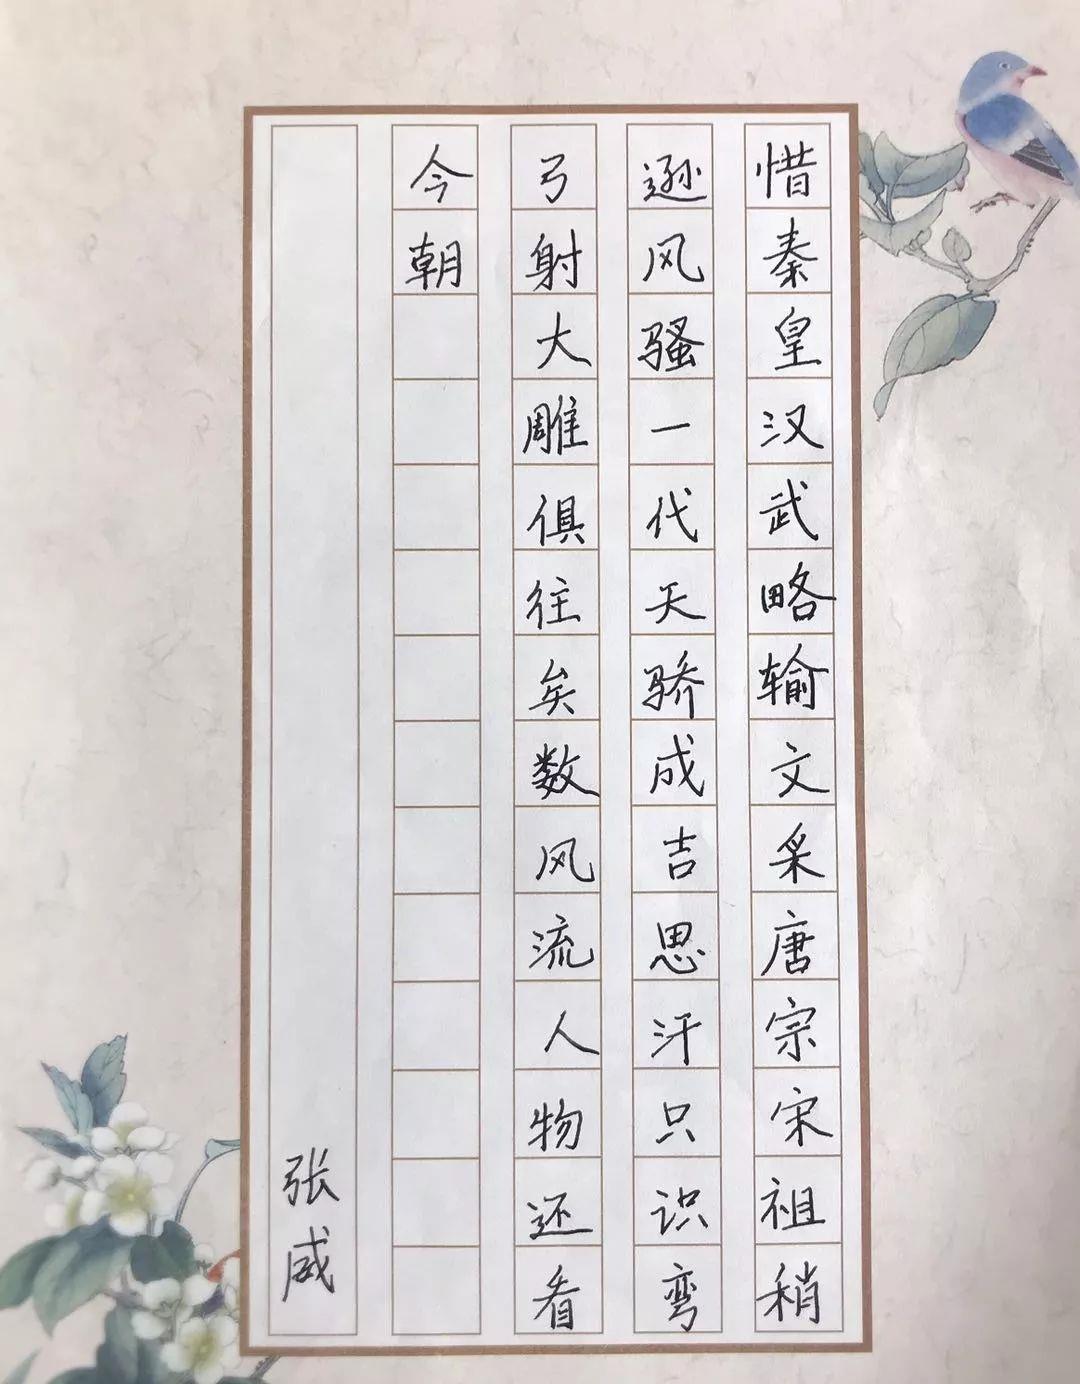 惜秦皇汉武略输文采唐宗宋祖稍
逊风骚一代天骄成吉思汗只识弯
弓射大雕俱往矣数风流人物还看
今朝
张威